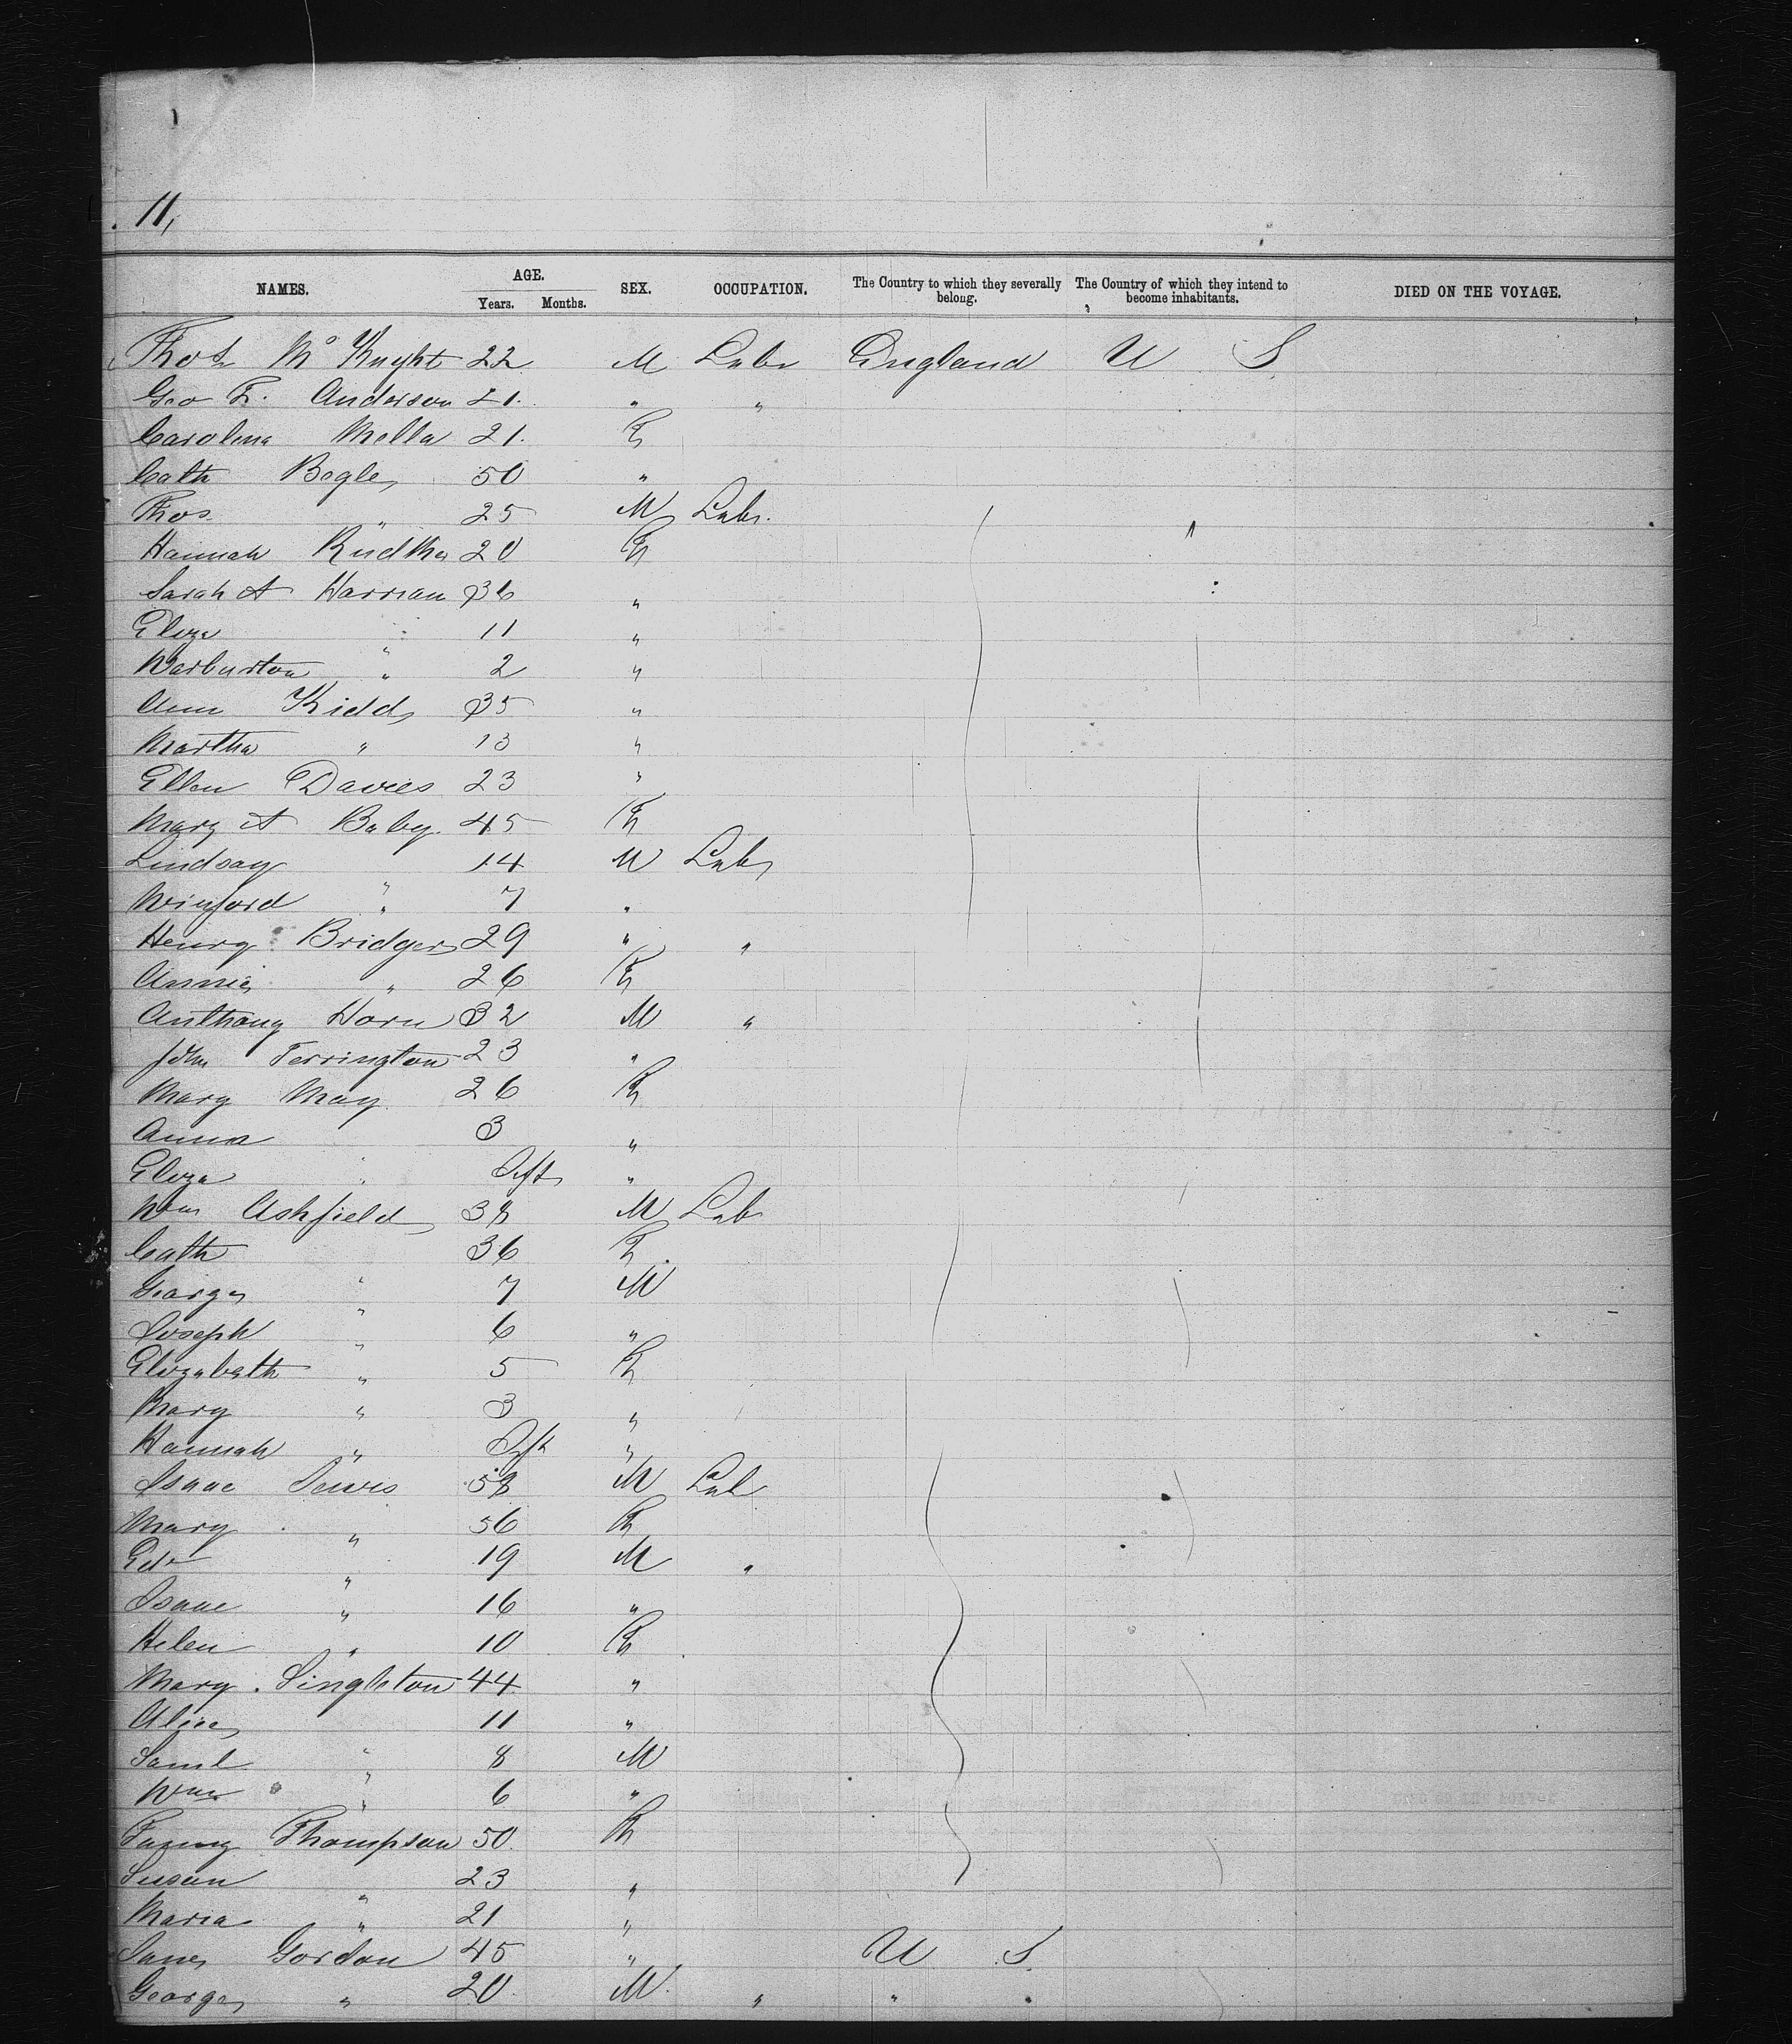 11,
NAMES. AGE. Years. Months. SEX. OCCUPATION. The Country to which they severally belong. The Country of which they intend to become inhabitants. DIED ON THE VOYAGE.
Thos Mc Knight 22 M Labr England U S
Geo F. Anderson 21. " "
Carolina Mella 21. F
Cath Bogle 50 "
Thos " 25 M Labr.
Hannah 20 F
Sarah A Harrian 36 "
Eliza " 11 "
Warburton " 2 "
Ann Kidd 35 "
Martha " 13 "
Ellen Davies 23 "
Mary A Baby 45 F
Lindsay " 14 M Labr
Winford " 7 "
Henry Bridger 29 " "
Annie " 26 F
Anthony Horn 32 M "
John Terrington 23 "
Mary May 26 F
Anna 3 "
Eliza " Inft "
Wm Ashfield 38 M Lab
Cath 36 F
George " 7 M
Joseph " 6 "
Elizabeth " 5 F
Mary " 3 "
Hannah " Inft "
Isaac Lewis 58 M Lab
Mary " 56 F
Edw " 19 M "
Isaac " 16 "
Helen " 10 F
Mary Singleton 44 "
Alice 11 "
Saml " 8 M
Wm " 6 "
Fanny Thompson 50 F
Susan " 23 "
Maria " 21 "
Jane Gordon 45 " U S
George " 20 M " " "